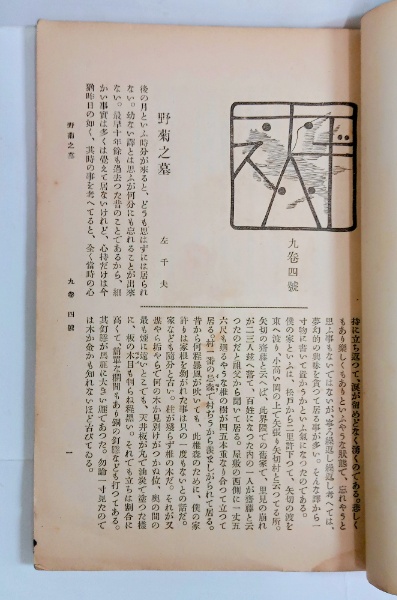 ホトトギス
九卷四號
野菊之墓
左千夫
後の月といふ時分が來ると、どうも思はずには居られ
ない。幼ない譯とは思ふが何分にも忘れることが出來
ない。最早十年餘も過去つた昔のことであるから、細
かい事實は多くは覺えて居ないけれど、心持だけは今
猶昨日の如く、其時の事を考へてると、全く當時の心
持に立ち返つて、涙が留めどなく湧くのである。悲しく
もあり樂しくもありといふやうな狀態で、忘れやうと
思ふ事もないではないが、寧ろ繰返し繰返し考へては、
夢幻的の興味を貪つて居る事が多い。そんな譯から一
寸物に書いて置かうかといふ氣になつたのである。
僕の家といふは、松戶から二里許下つて、矢切の渡を
東へ渡り、小高い岡の上で矢張り矢切村と云つてる所。
矢切の齋藤と云へば、此界隈での舊家で、里見の崩れ
が二三人落ちて百姓になつた內の一人が齋藤と云
つたのだと祖父から聞いて居る。屋敷の西側に一丈五
六尺も廻るやうな椎の樹が四五本重なり合つて立つて
居る。村一番の忌森で村ぢうから羨ましがられて居る。
昔から何程暴風が吹いても、此椎森のために、僕の家
許りは家根を剝がれた事は只の一度もないとの話だ。
家なども隨分と古い、柱が殘らず椎の木だ。それが又
煤やら垢やらで何の木か見別けがつかぬ位、奧の間の
最も煙に遠いとこでも、天井板が丸で油炭で塗つた樣
に、板の木目も判らぬ程黑い。それでも立ちは割合に
高くて、簡單な欄間もあり銅の釘隱なども打つてある。
其釘隱が馬鹿に大きい雁であつた。勿論一寸見たので
は木か金かも知れないほど古びてゐる。
野菊之墓
九卷四號
一